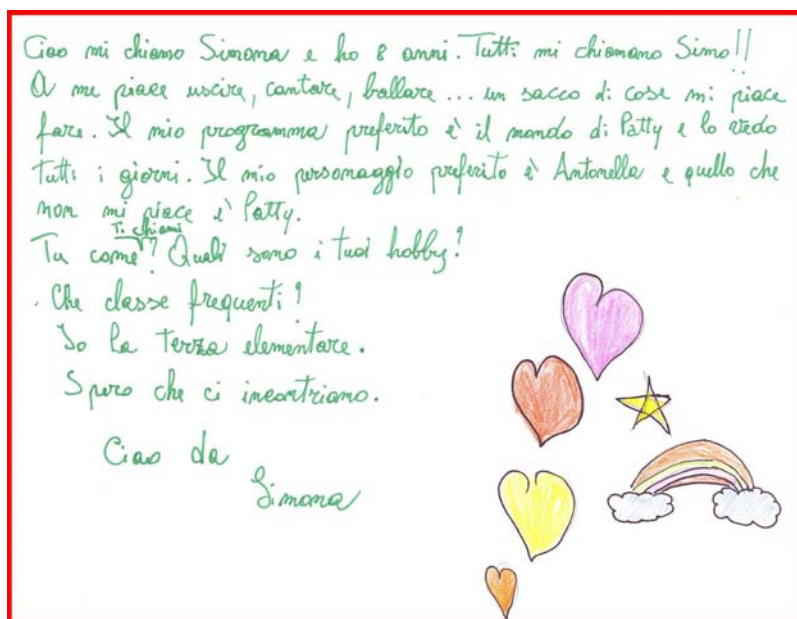 Ciao mi chiamo Simona e ho 8 anni. Tutti mi chiamano Simo!!
A me piace uscire, cantare, ballare... un sacco di cose mi piace
fare. Il mio programma preferito è il mondo di Patty e lo vedo
tutti i giorni. Il mio personaggio preferito è Antonella e quello che
non mi piace è Patty.
Tu come ti chiami? Quali sono i tuoi hobby?
Che classe frequenti?
Io la terza elementare.
Spero che ci incontriamo.
Ciao da
Simona